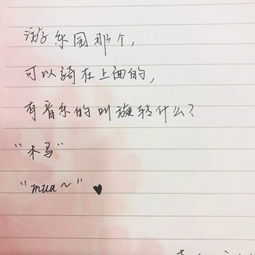 游乐园那个，
可以骑在上面的，
有音乐的叫旋转什么？
“木马”
“mua~” ♥